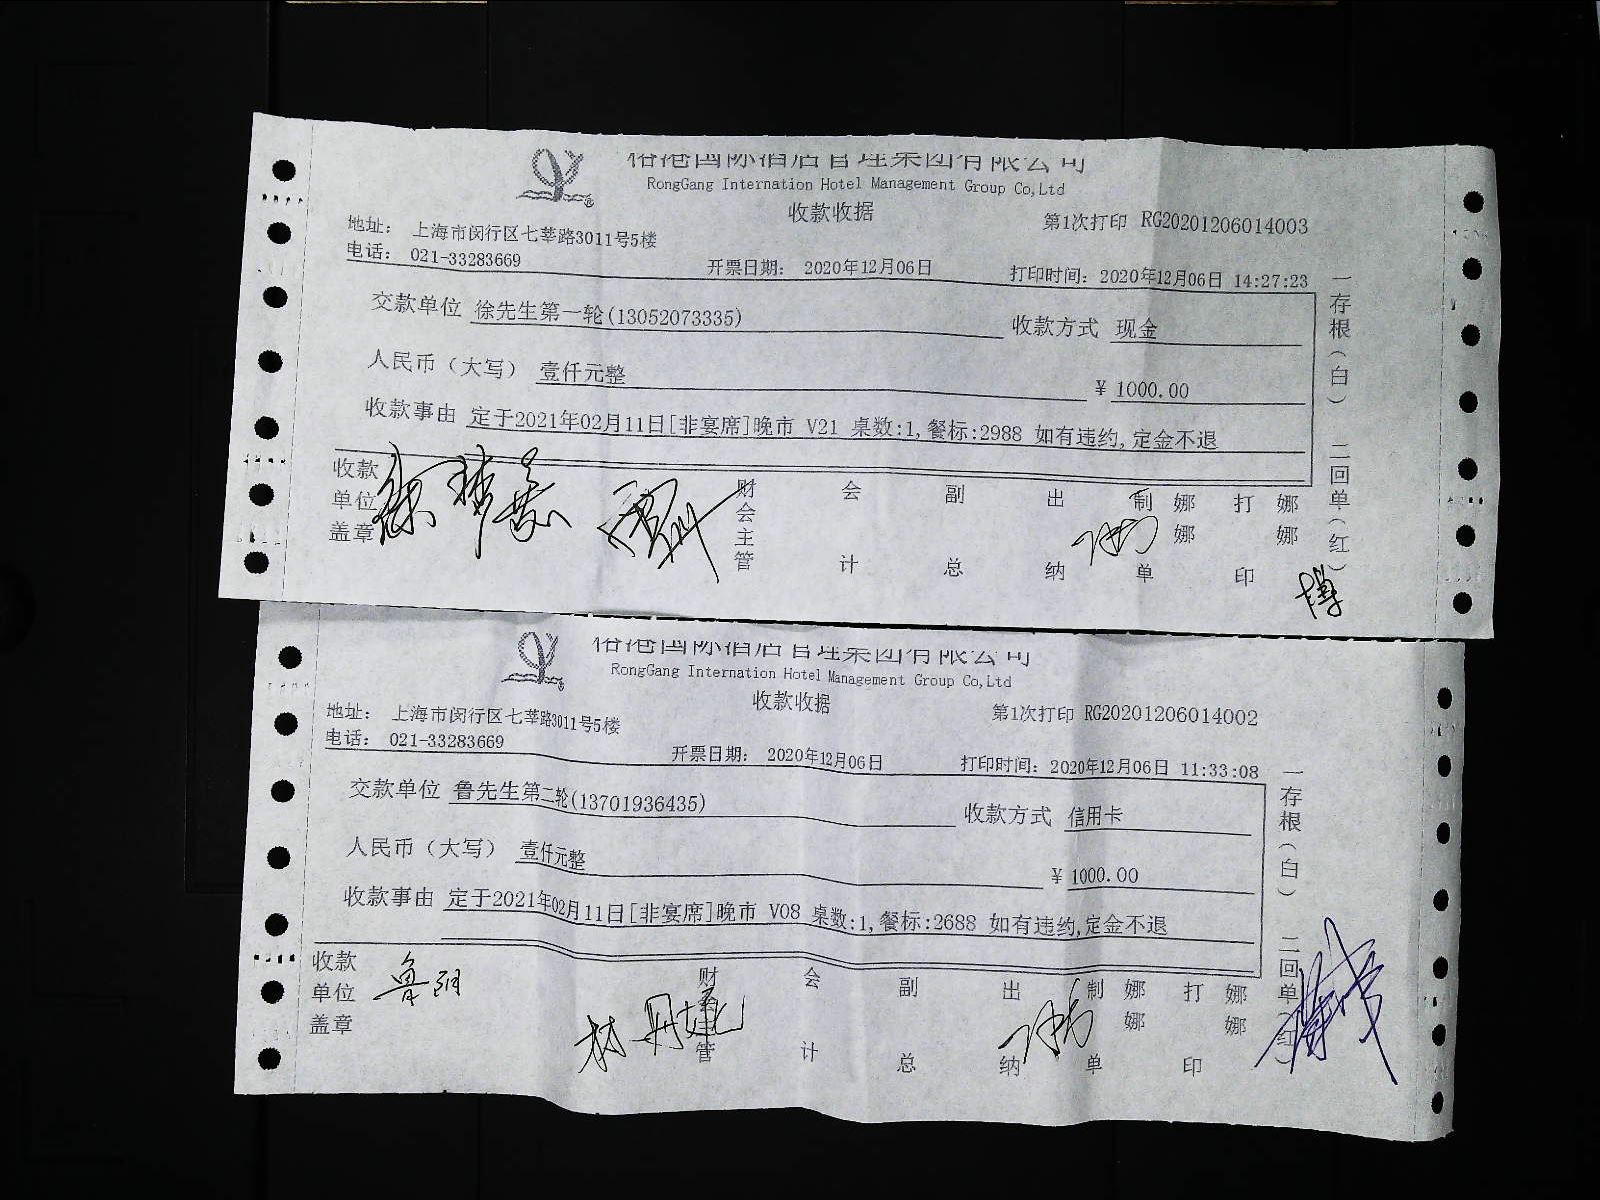 裕港国际酒店管理集团有限公司
RongGang Internation Hotel Management Group Co,Ltd
收款收据
第1次打印 RG20201206014003
地址： 上海市闵行区七莘路3011号5楼
电话： 021-33283669
开票日期： 2020年12月06日
打印时间：2020年12月06日 14:27:23
交款单位 徐先生第一轮(13052073335)
收款方式 现金
人民币（大写） 壹仟元整
¥ 1000.00
收款事由 定于2021年02月11日[非宴席]晚市 V21 桌数:1,餐标:2988 如有违约,定金不退
收款单位盖章
财会主管
会计
副总
出纳
制单 娜娜
打印 娜娜
一存根（白） 二回单（红）
裕港国际酒店管理集团有限公司
RongGang Internation Hotel Management Group Co,Ltd
收款收据
第1次打印 RG20201206014002
地址： 上海市闵行区七莘路3011号5楼
电话： 021-33283669
开票日期： 2020年12月06日
打印时间：2020年12月06日 11:33:08
交款单位 鲁先生第二轮(13701936435)
收款方式 信用卡
人民币（大写） 壹仟元整
¥ 1000.00
收款事由 定于2021年02月11日[非宴席]晚市 V08 桌数:1,餐标:2688 如有违约,定金不退
收款单位盖章
财会主管
会计
副总
出纳
制单 娜娜
打印 娜娜
一存根（白） 二回单（红）